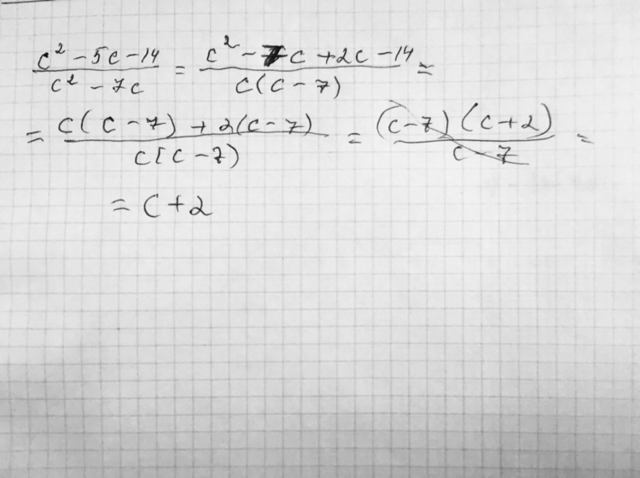 (c² - 5c - 14)/(c² - 7c) = (c² - 7c + 2c - 14)/(c(c - 7)) =
= (c(c - 7) + 2(c - 7))/(c(c - 7)) = ((c - 7)(c + 2))/(c - 7) =
= c + 2